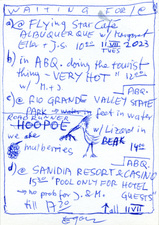 WAITING FOR/@
a) @ FLYING STAR Cafe
ALBUQUERQUE w/ Margaret
Ella + J.S. 10 00 11 VII 2023
TUES
b) in ABQ. doing the tourist
thing ~ VERY HOT " 12 00
w/ M. + J.
ABQ.
c) @ RIO GRANDE VALLEY STATE
PARK feet in water
ROAD RUNNER
HOOPOE w/ Lizard in
we ate BEAK
mulberries 14 00
ABQ.
d) @ SANDIA RESORT & CASINO
15 45 "POOL ONLY FOR HOTEL
→ no pool for J. & M. GUESTS"
till 17 20
↑ all 11 VII